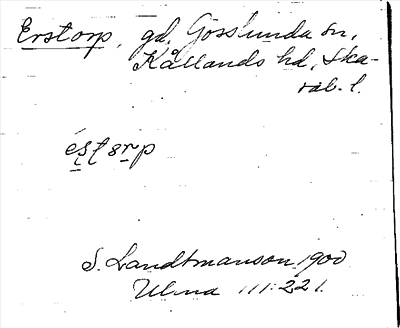 Erstorp, gd, Gösslunda sn,
Kållands hd, Ska-
rab. l.
S. Landtmanson 1900
Ulma 111:221.